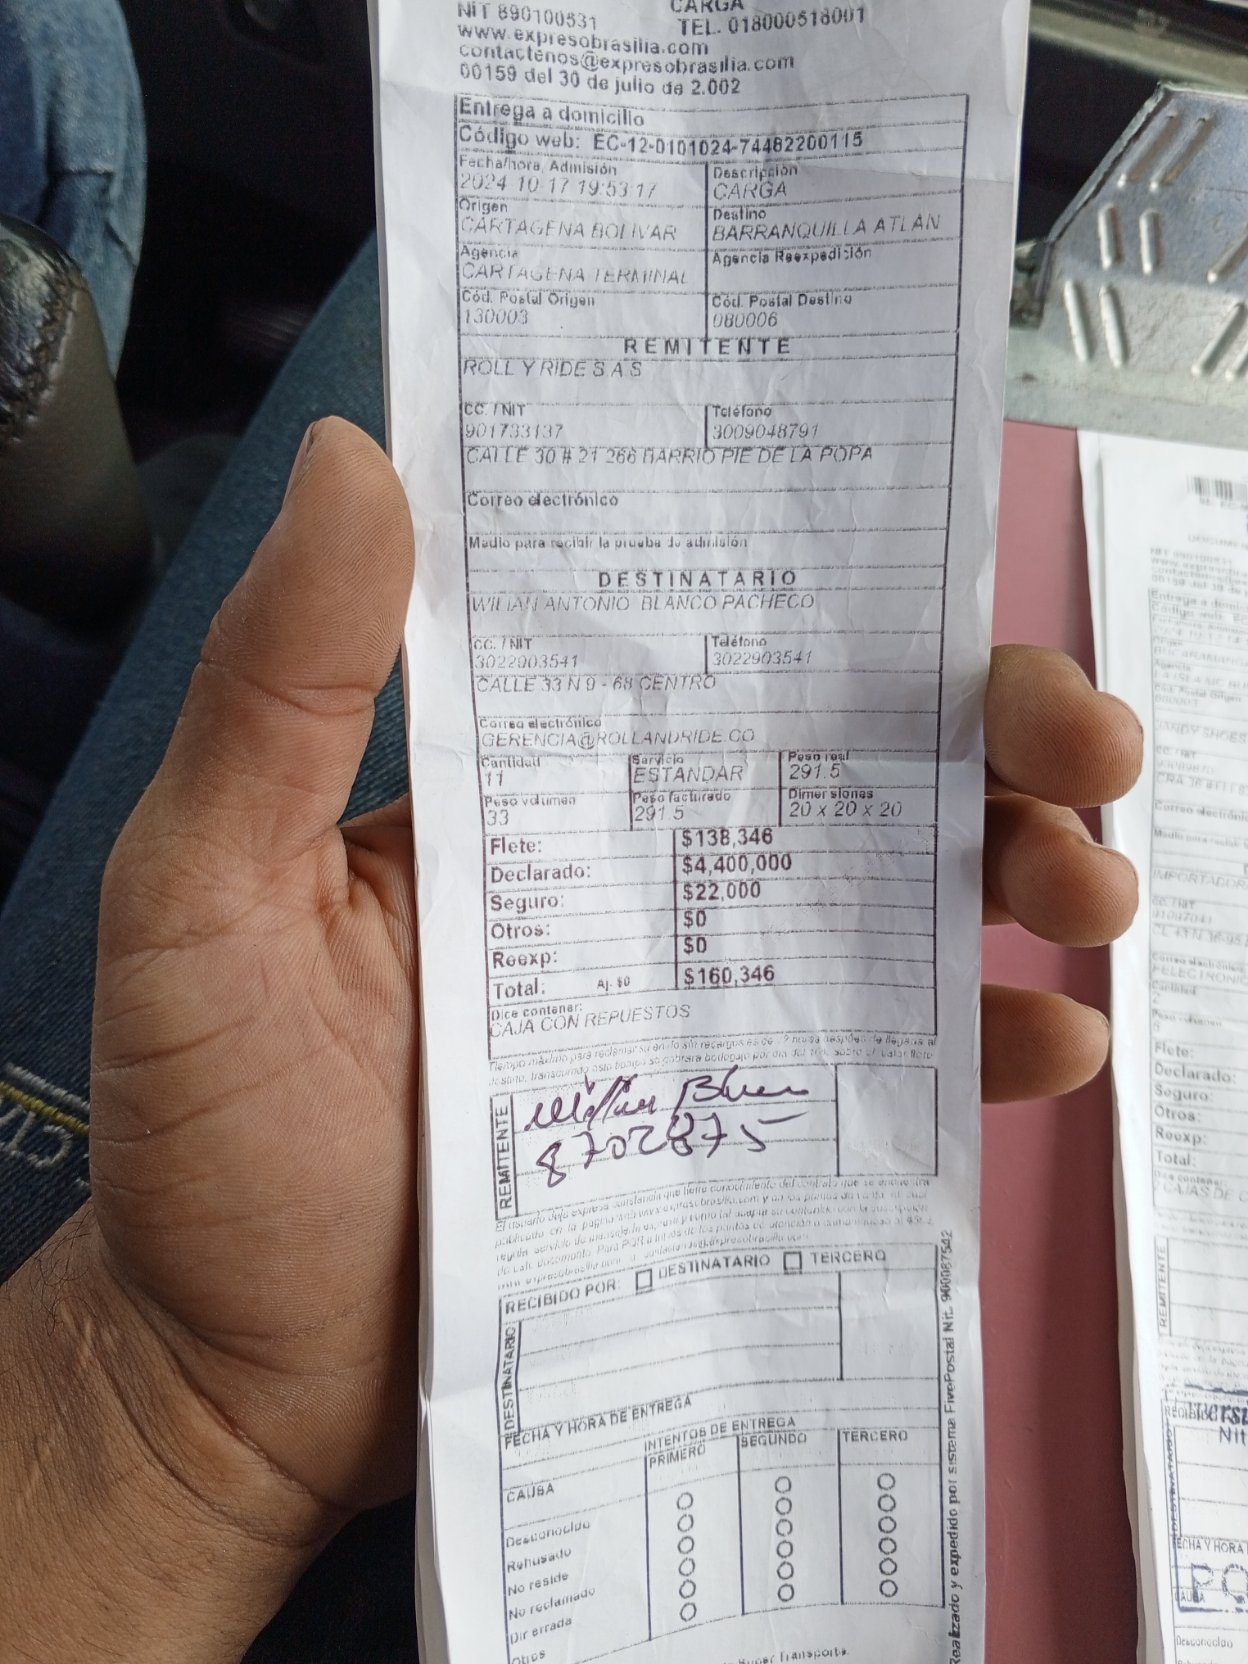 CARGA
NIT 890100531 TEL. 018000518001
www.expresobrasilia.com
contactenos@expresobrasilia.com
00159 del 30 de julio de 2.002
Entrega a domicilio
Código web: EC-12-0101024-74482200115
Fecha/hora, Admisión Descripción
2024-10-17 19:53:17 CARGA
Origen Destino
CARTAGENA BOLIVAR BARRANQUILLA ATLAN
Agencia Agencia Reexpedición
CARTAGENA TERMINAL
Cód. Postal Origen Cód. Postal Destino
130003 080006
REMITENTE
ROLL Y RIDE S A S
CC. / NIT Teléfono
901733137 3009048791
CALLE 30 # 21 266 BARRIO PIE DE LA POPA
Correo electrónico
Medio para recibir la prueba de admisión
DESTINATARIO
WILIAN ANTONIO BLANCO PACHECO
CC. / NIT Teléfono
3022903541 3022903541
CALLE 33 N 9 - 68 CENTRO
Correo electrónico
GERENCIA@ROLLANDRIDE.CO
Cantidad Servicio Peso real
11 ESTANDAR 291.5
Peso volumen Peso facturado Dimensiones
33 291.5 20 x 20 x 20
Flete: $138,346
Declarado: $4,400,000
Seguro: $22,000
Otros: $0
Reexp: $0
Total: Aj. $0 $160,346
Dice contener:
CAJA CON REPUESTOS
REMITENTE
8702875
RECIBIDO POR: DESTINATARIO TERCERO
DESTINATARIO
FECHA Y HORA DE ENTREGA
INTENTOS DE ENTREGA
PRIMERO SEGUNDO TERCERO
CAUSA
Desconocido
Rehusado
No reside
No reclamado
Dir errada
Otros
Realizado y expedido por sistema FivePostal Nit. 900087542
Flete:
Declarado:
Seguro:
Otros:
Reexp:
Total:
REMITENTE